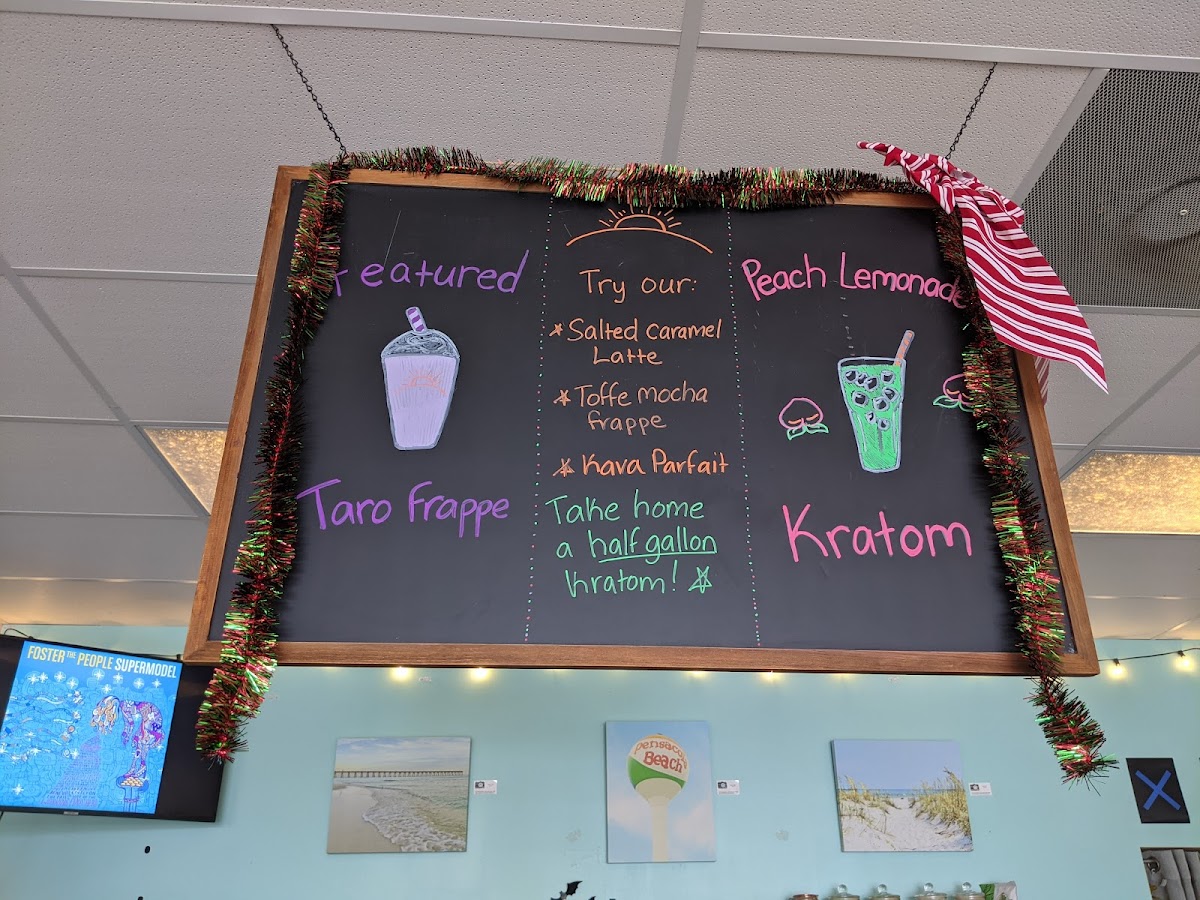 Featured
Taro Frappe
Try our:
Salted Caramel
Latte
Toffe mocha
frappe
Kava Parfait
Take home
a half gallon
kratom!
Peach Lemonade
Kratom
FOSTER THE PEOPLE SUPERMODEL
Pensacola
Beach